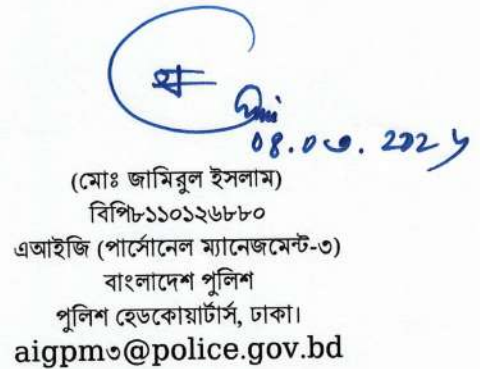 ০৪.০৩.২০২৬
(মোঃ জামিরুল ইসলাম)
বিপি৮১১০১২৬৮৮০
এআইজি (পার্সোনেল ম্যানেজমেন্ট-৩)
বাংলাদেশ পুলিশ
পুলিশ হেডকোয়ার্টার্স, ঢাকা।
aigpm৩@police.gov.bd